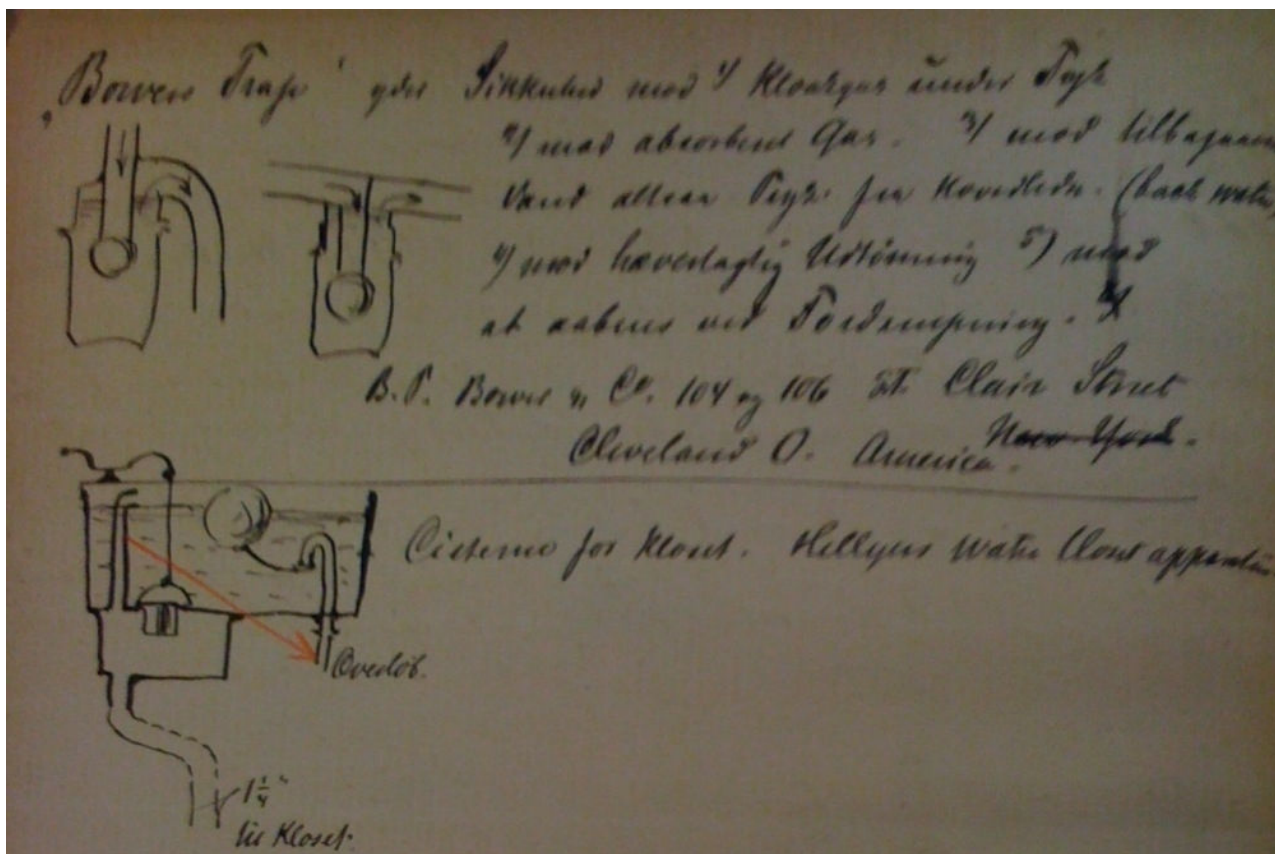 „Bowers Trap“ yder Sikkerhed mod 1) Kloakgas under Tryk
2) mod absorbent Gas. 3) mod tilbagegaaende
Vand eller Tryk fra Hovedledn. (back water)
4) mod hævertagtig Udtömning 5) mod
at aabnes ved Fordampning.
B. P. Bower & Co. 104 og 106 St. Clair Street
Cleveland O. America. New York.
Cisterne for Kloset. Hellyers water Closet apparatus
Overlöb.
1 1/4"
til Kloset.